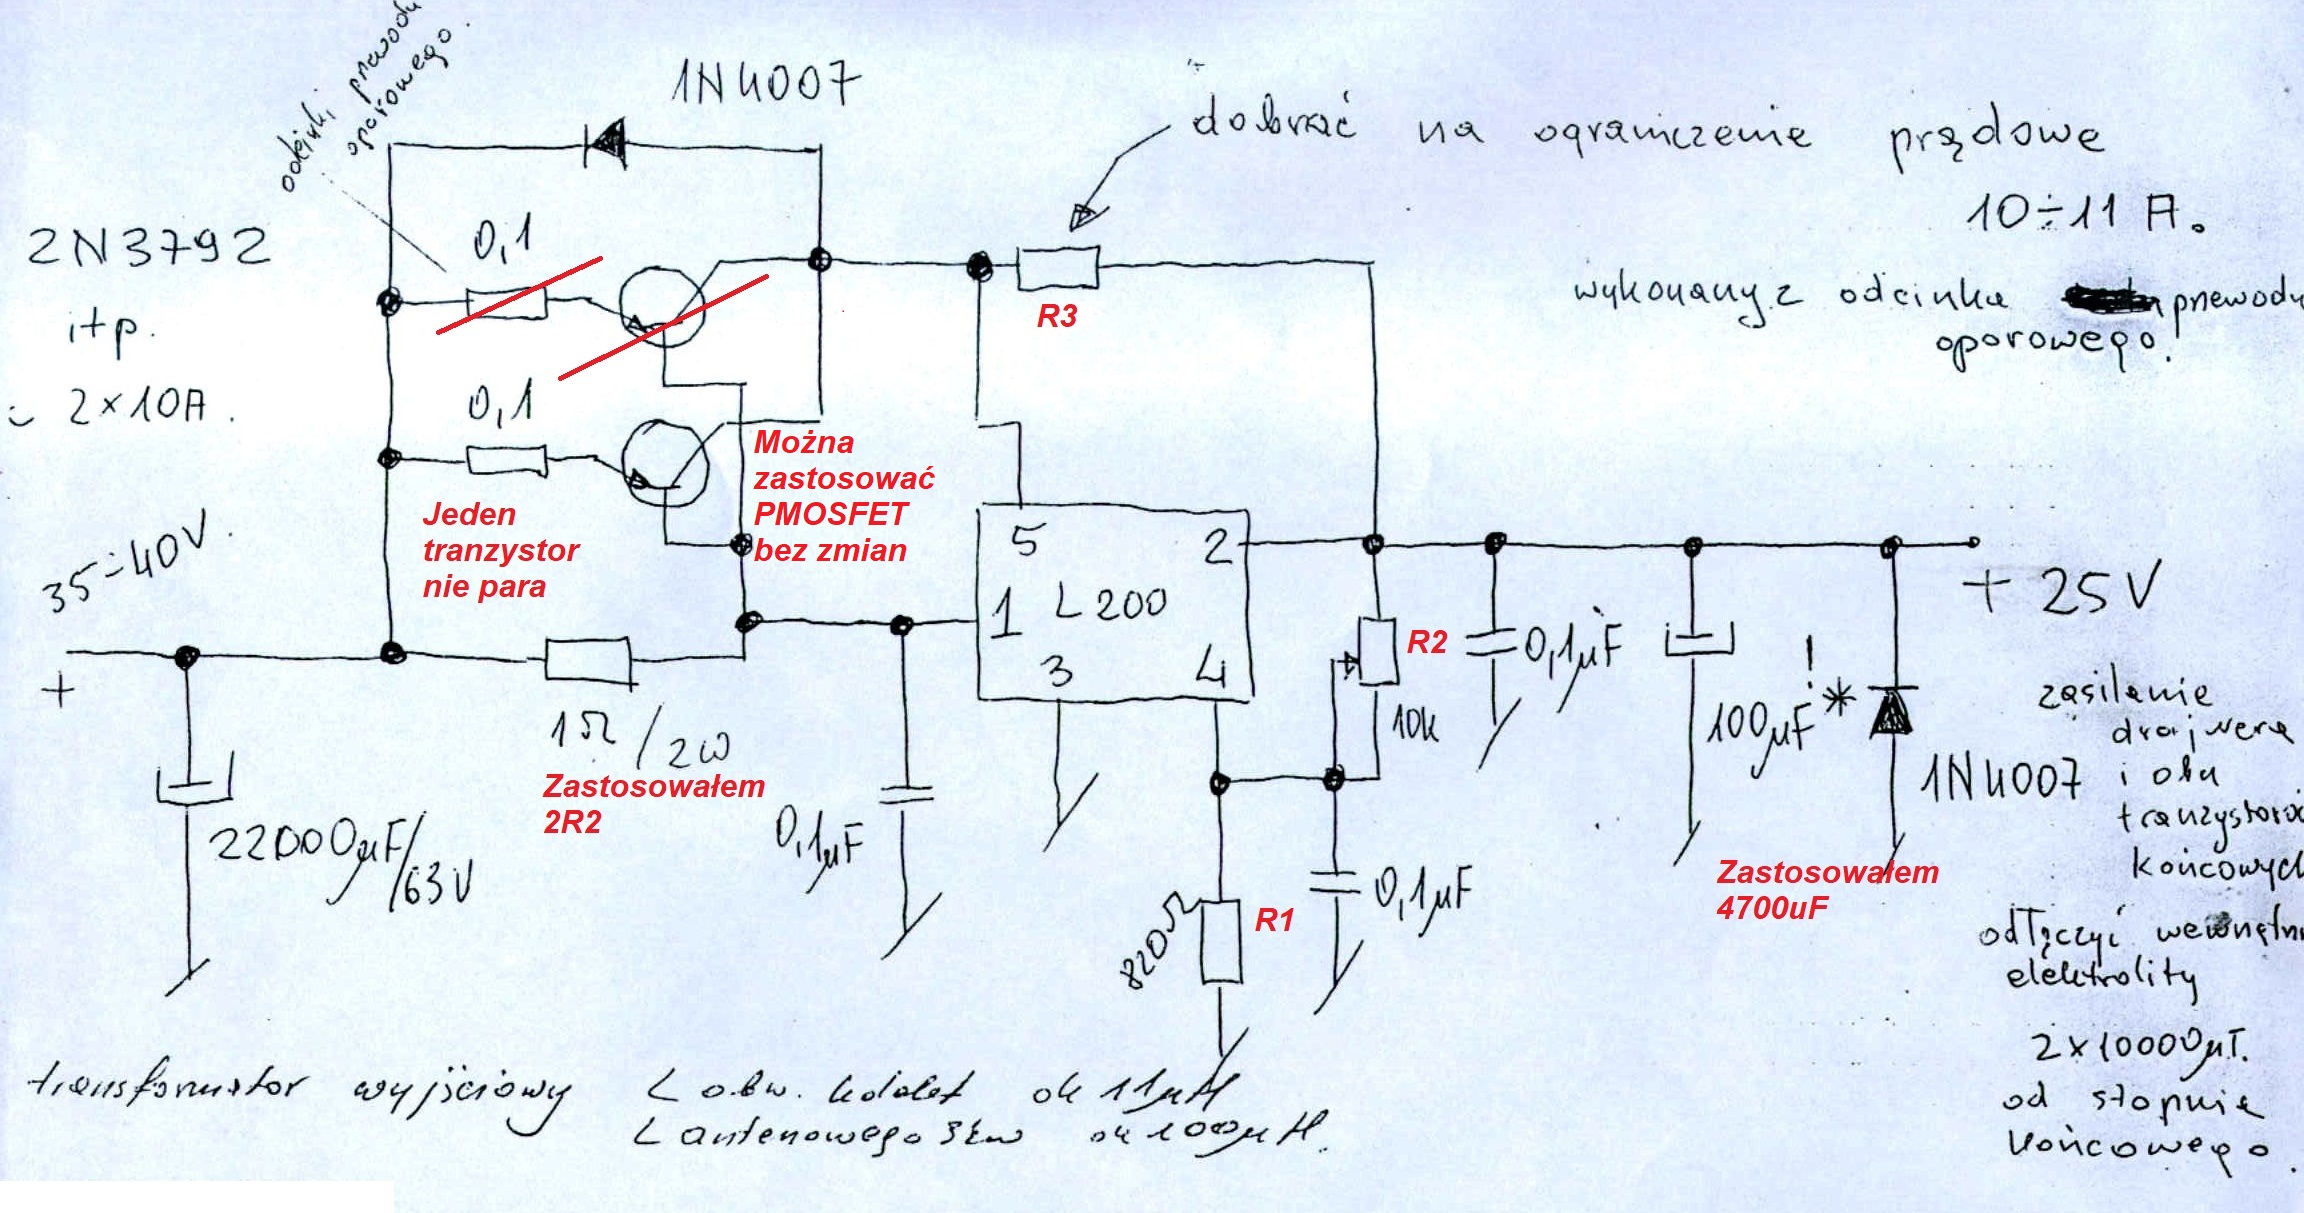 odcinki przewodu
oporowego.
1N4007
dobrać na ograniczenie prądowe
10÷11 A.
wykonany z odcinka przewodu
oporowego!
2N3792
itp.
2×10A.
0,1
R3
0,1
Można
zastosować
PMOSFET
bez zmian
Jeden
tranzystor
nie para
35÷40V.
+
5
2
1
L200
3
4
+25V
R2
10k
0,1µF
100µF
!
*
1N4007
zasilanie
drajwera
i obu
końcowych
1Ω/2W
Zastosowałem
2R2
22000µF/63V
0,1µF
Zastosowałem
4700uF
820Ω
R1
0,1µF
odłączyć
elektrolity
2×10000µF.
od stopnia
końcowego.
transformator wyjściowy L obw. kolekt ok 11µH
L antenowego 3zw ok 100µH.